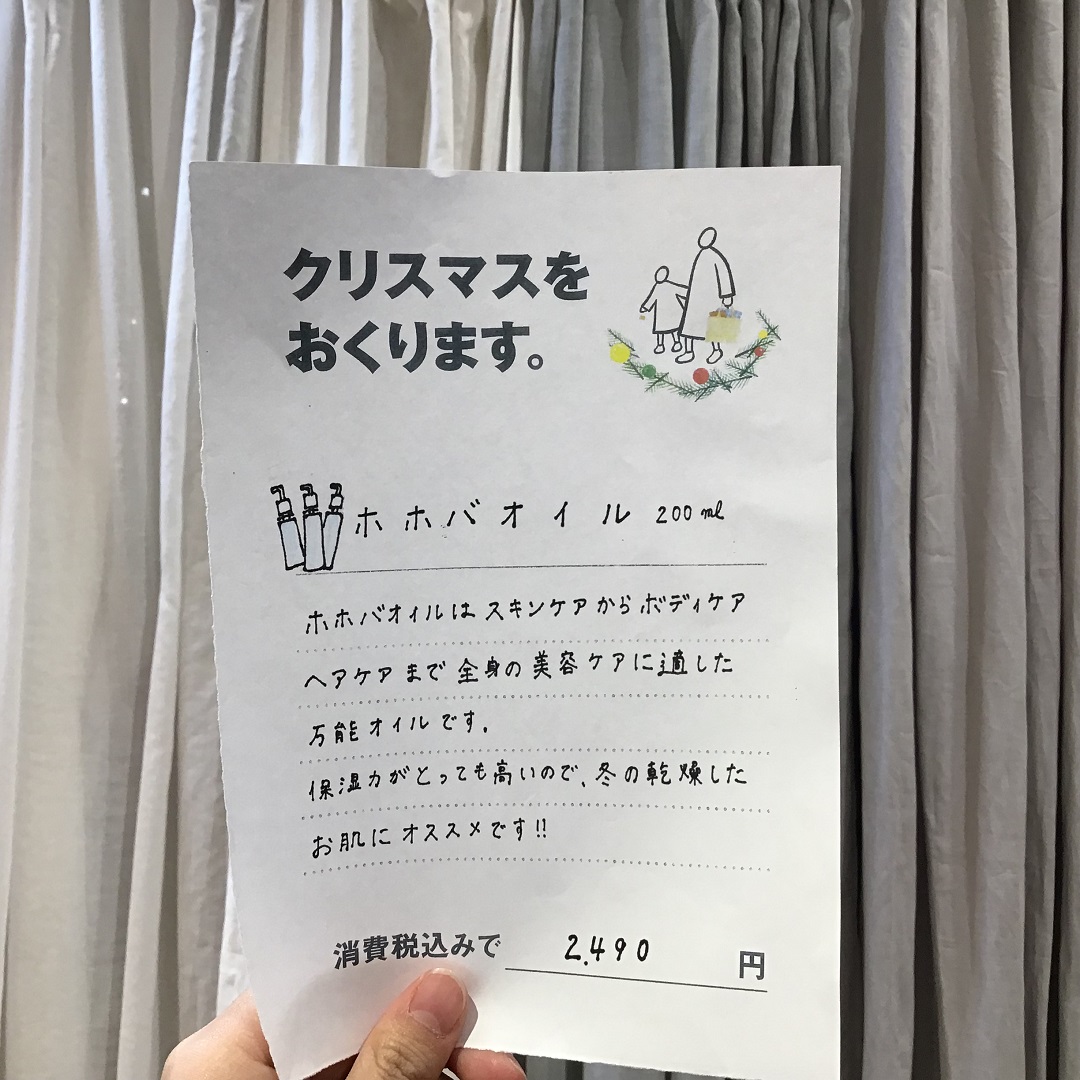 クリスマスを
おくります。
ホホバオイル 200ml
ホホバオイルはスキンケアからボディケア
ヘアケアまで全身の美容ケアに適した
万能オイルです。
保湿力がとっても高いので、冬の乾燥した
お肌にオススメです!!
消費税込みで 2,490 円